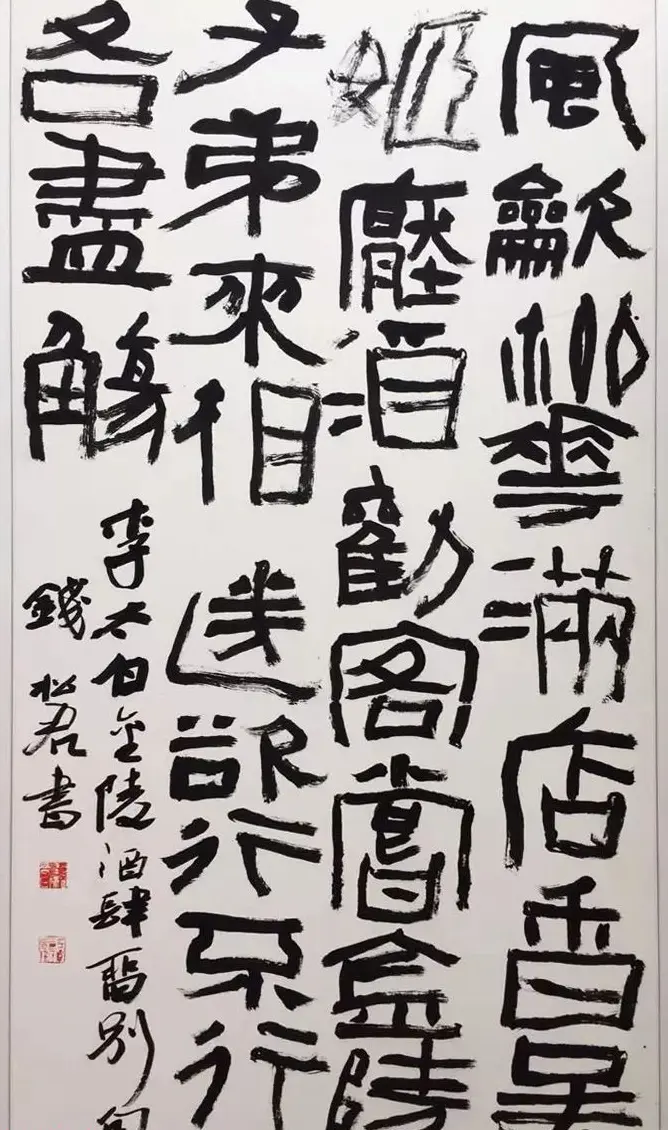 風龡柳華滿店香吳
姬壓酒勸客嘗金陵
子弟來相送欲行不行
各盡觴
李太白金陵酒肆留別
錢松君書